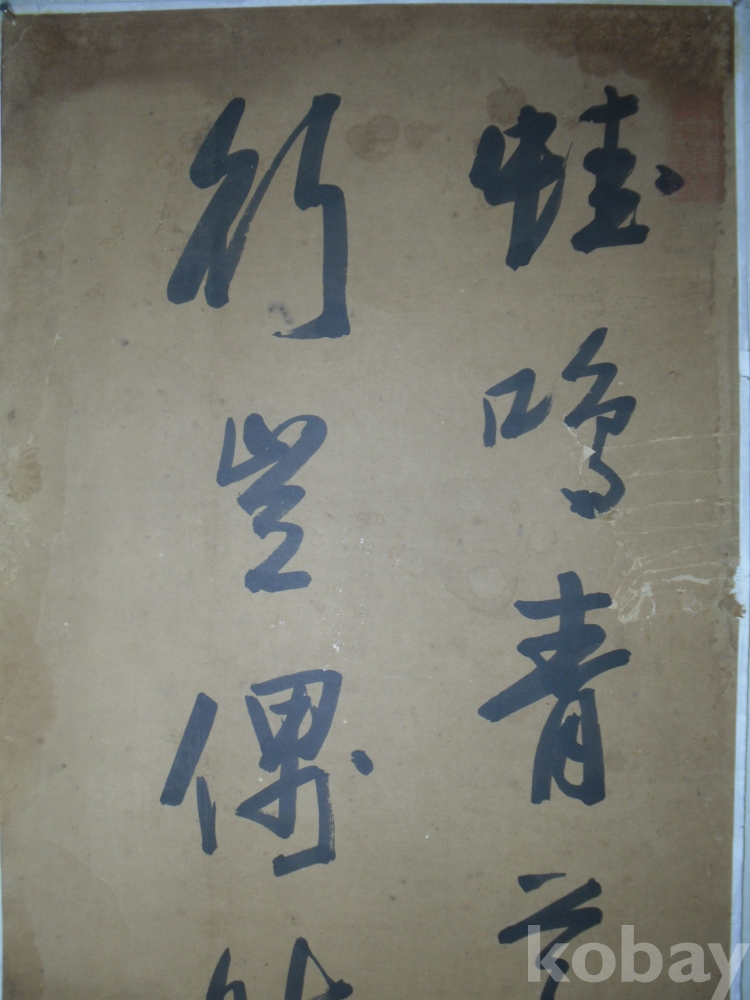 蛙鳴青
行豈偶
kobay